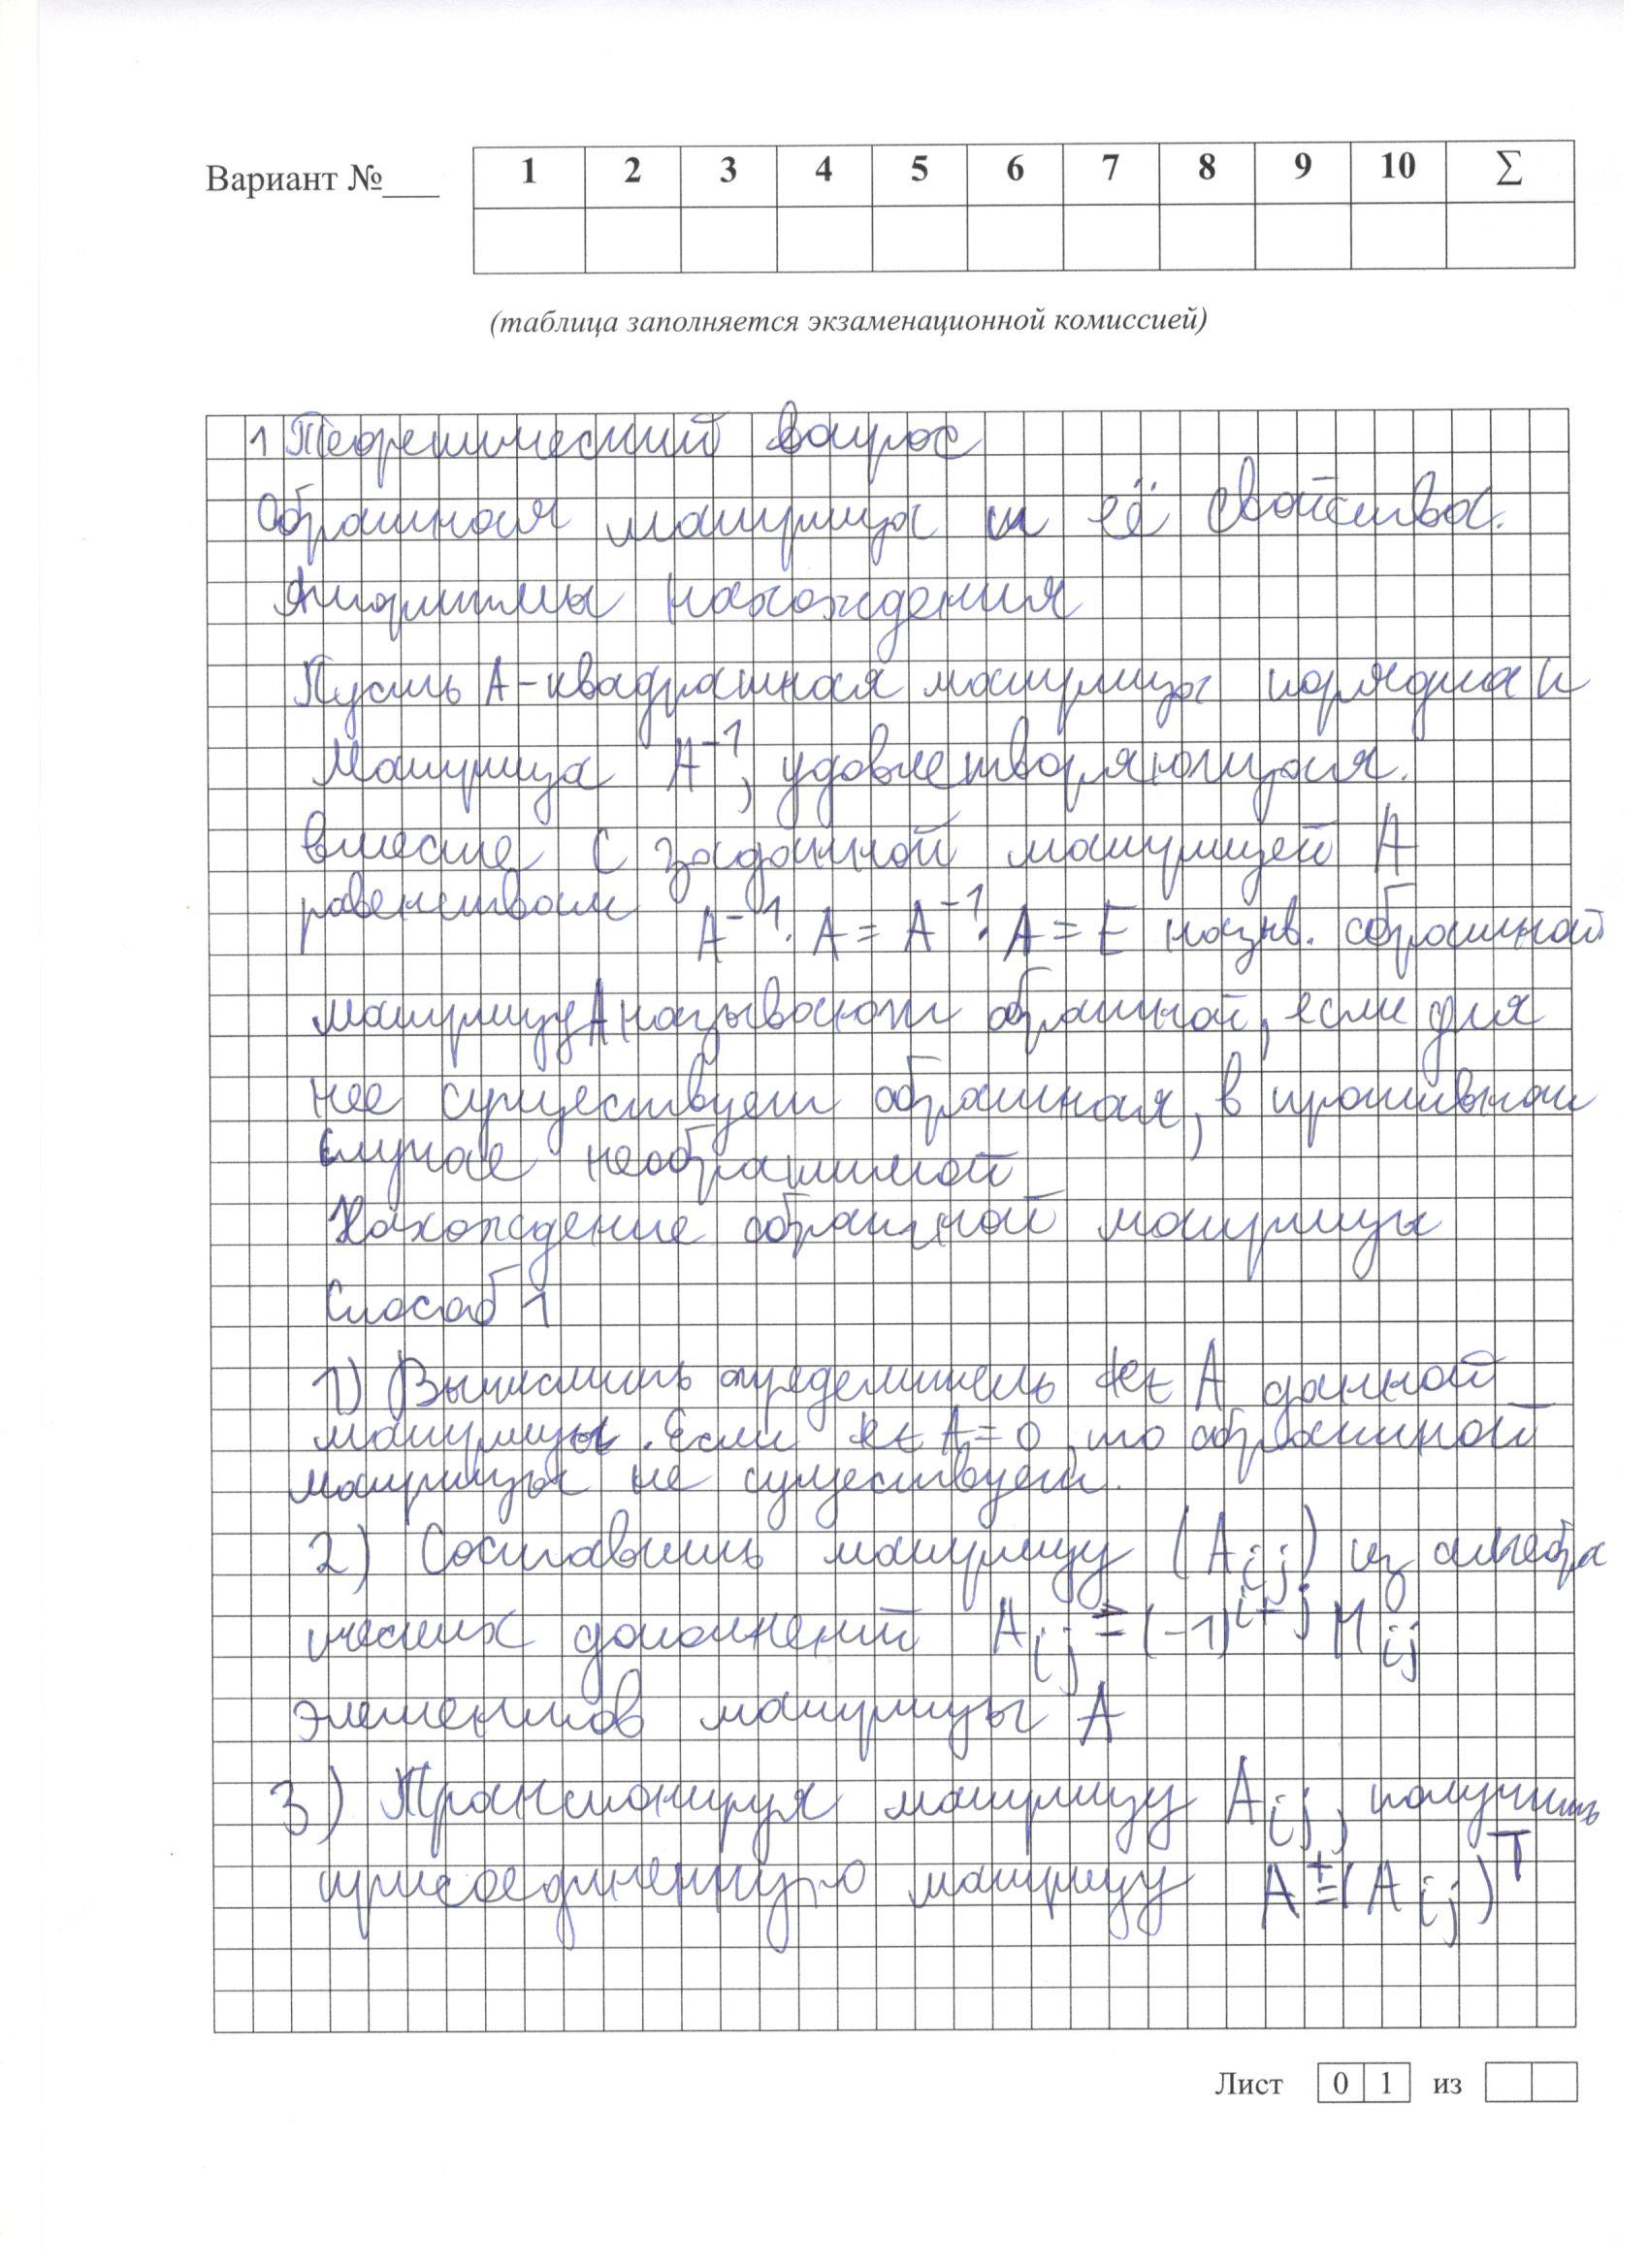 Вариант №___
1 2 3 4 5 6 7 8 9 10 ∑
(таблица заполняется экзаменационной комиссией)
1 Теоретический вопрос
Обратная матрица и её свойства.
Алгоритмы нахождения
Пусть А - квадратная матрица порядка n
Матрица A⁻¹, удовлетворяющая.
вместе с заданной матрицей А
равенствам A⁻¹·A = A⁻¹·A = E назыв. обратной
матрицу А называют обратной, если для
нее существует обратная, в противном
случае необратимой
Нахождение обратной матрицы
Способ 1
1) Вычислить определитель det A данной
матрицы. Если det A = 0, то обратной
матрицы не существует.
2) Составить матрицу (Aij) из алгебра
ических дополнений Aij = (-1)^(i+j) Mij
элементов матрицы А
3) Транспонируя матрицу Aij, получить
присоединенную матрицу A⁺=(Aij)ᵀ
Лист 0 1 из